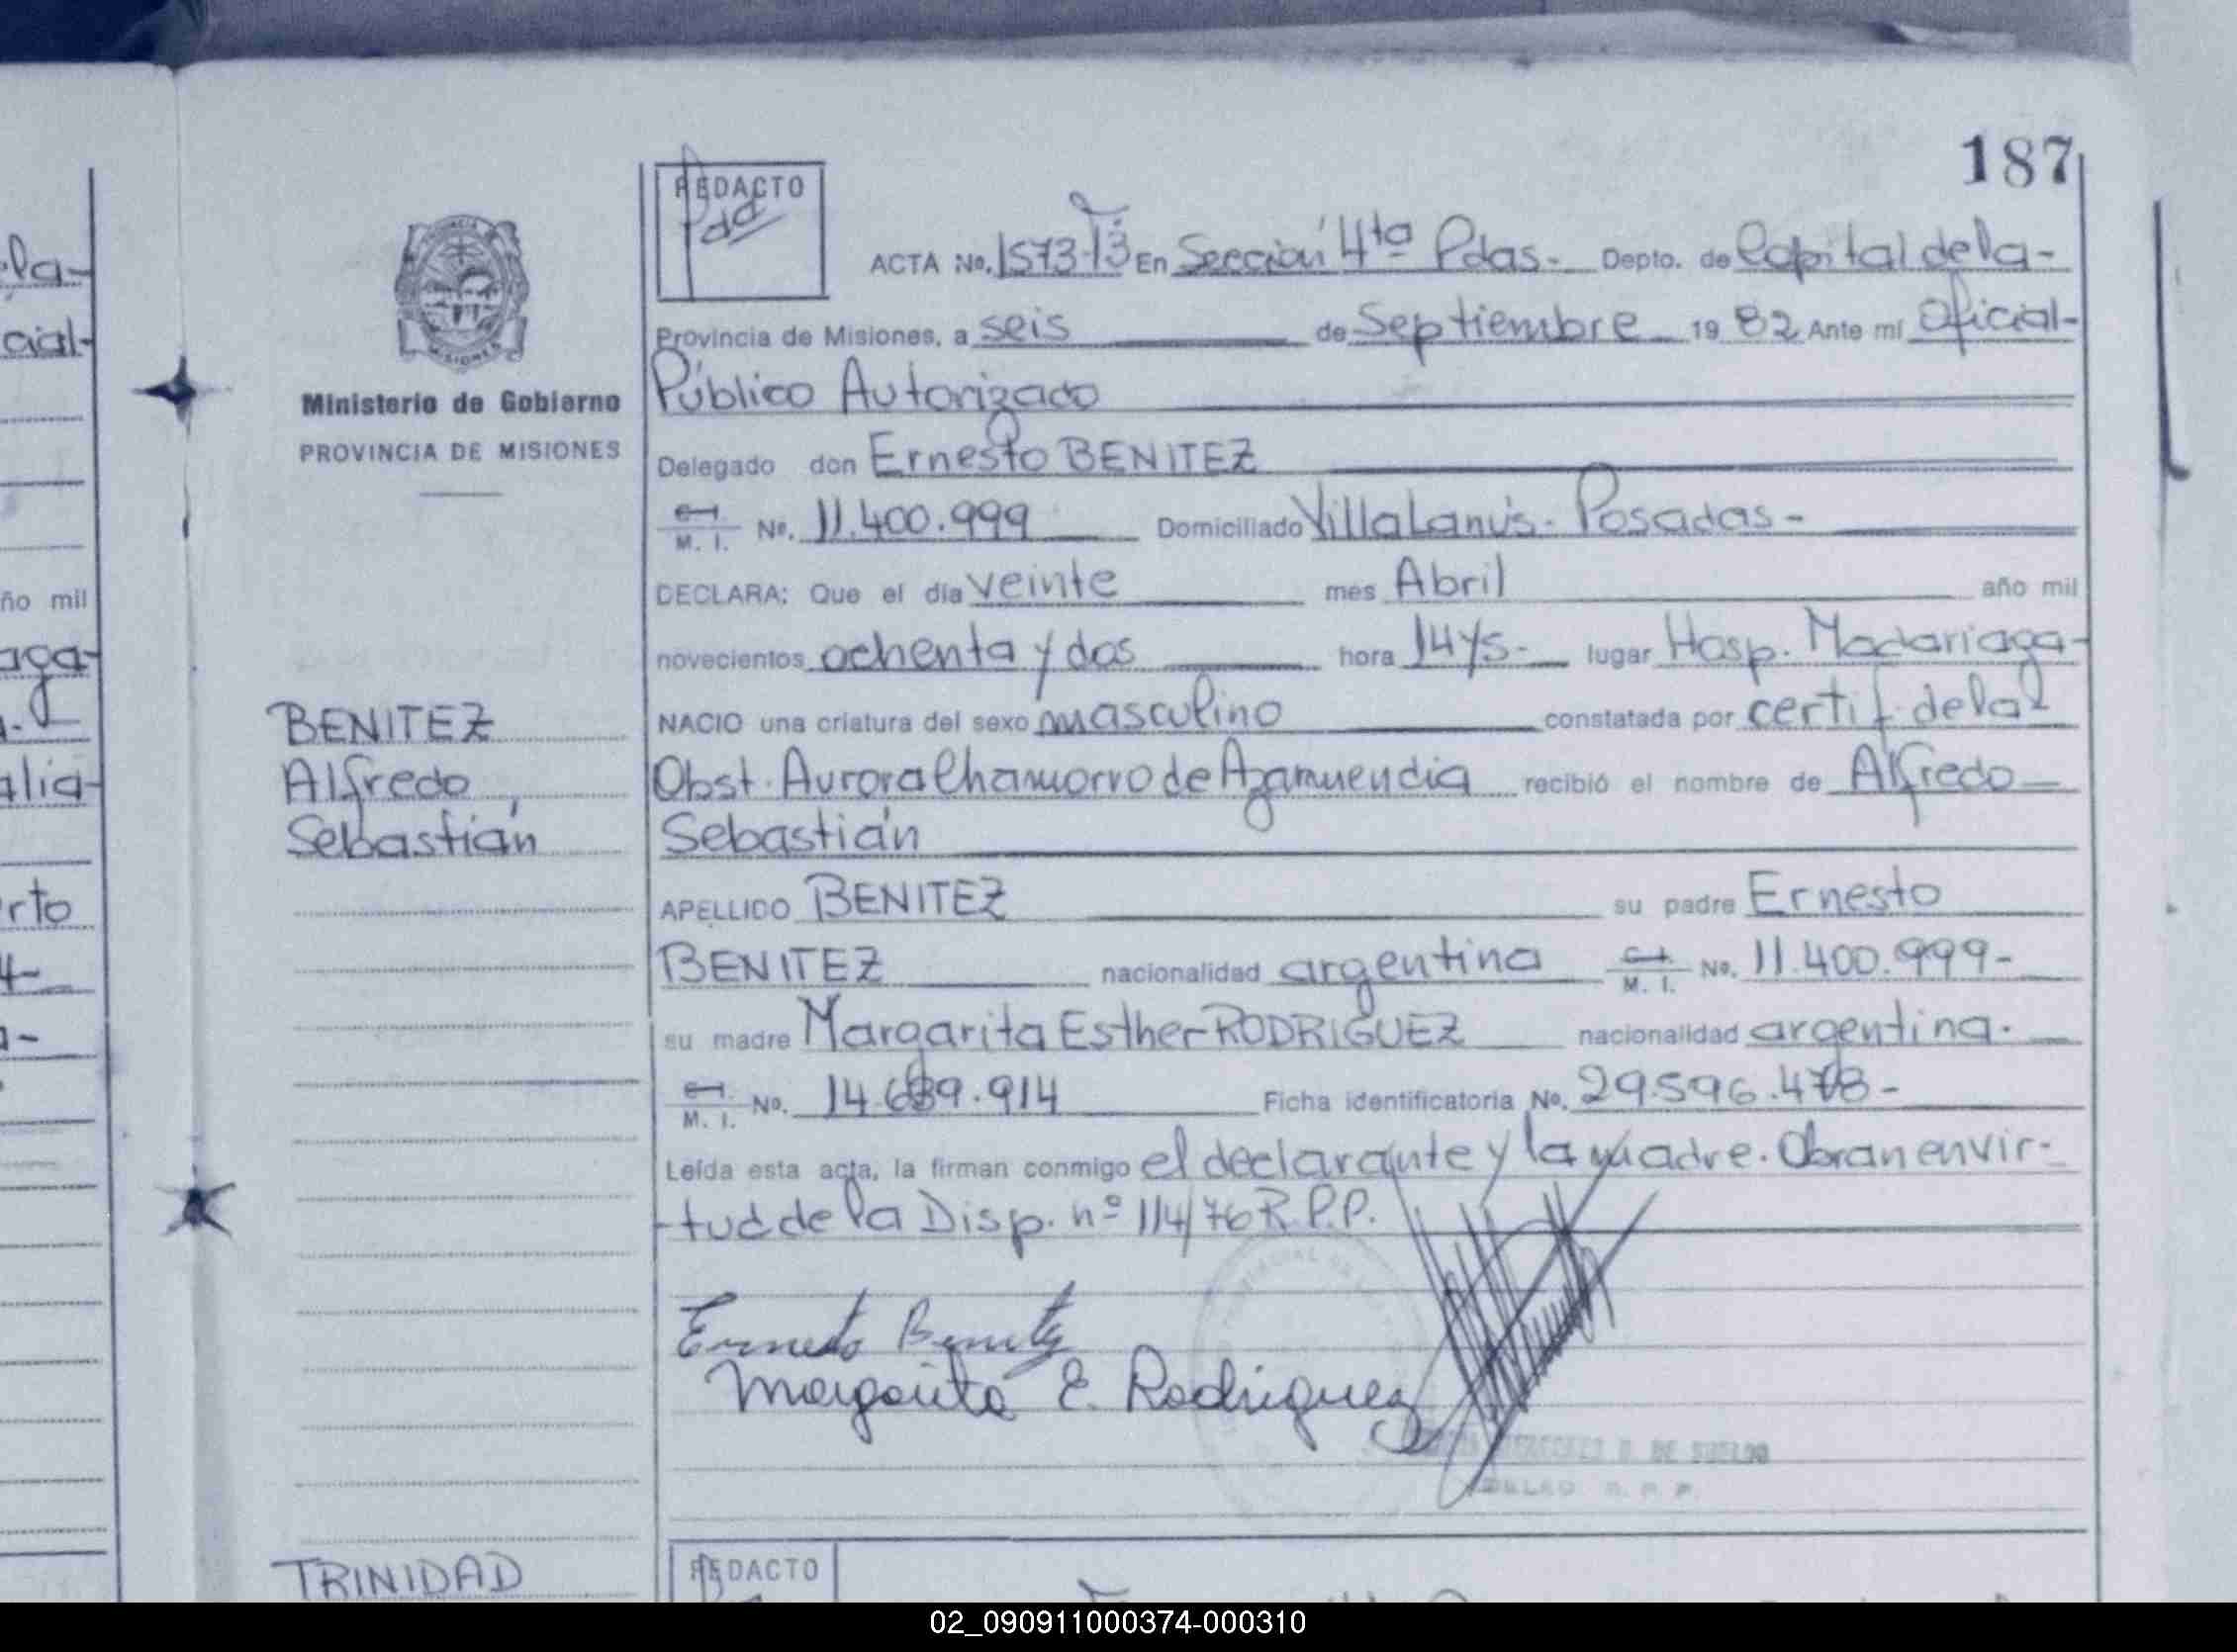 187
REDACTO
ACTA No. 1573 T3 En Sección 4ta Pdas. Depto. de Capital de la-
Provincia de Misiones, a seis de Septiembre 19 82 Ante mí Oficial-
Público Autorizado
Delegado don Ernesto BENITEZ
C.I. M. I. No. 11.400.999 Domiciliado Villa Lanús. Posadas-
DECLARA: Que el día veinte mes Abril año mil
novecientos ochenta y dos hora 1445- lugar Hosp. Madariaga-
NACIO una criatura del sexo masculino constatada por certif. de la
Obst. Aurora Chamorro de Azamuendia recibió el nombre de Alfredo
Sebastián
APELLIDO BENITEZ su padre Ernesto
BENITEZ nacionalidad argentina C.I. M. I. No. 11.400.999-
su madre Margarita Esther RODRIGUEZ nacionalidad argentina.
C.I. M. I. No. 14.689.914 Ficha identificatoria No. 29.596.478-
Leída esta acta, la firman conmigo el declarante y la madre. Obran en vir-
-tud de la Disp. nº 114/76 R.P.P.
Ernesto Benitez
Margarita E. Rodriguez
DE SUELDO
R. P. P.
Ministerio de Gobierno
PROVINCIA DE MISIONES
BENITEZ
Alfredo
Sebastián
TRINIDAD
REDACTO
la-
cial-
ño mil
aga-
alia-
rto
4-
a-
02_090911000374-000310